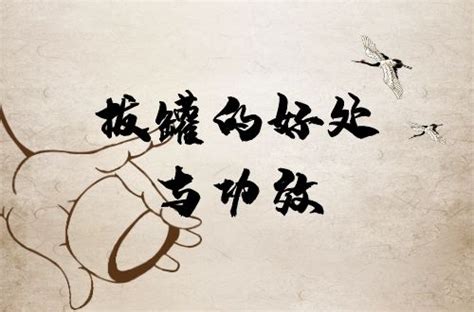 拔罐的好处
与功效